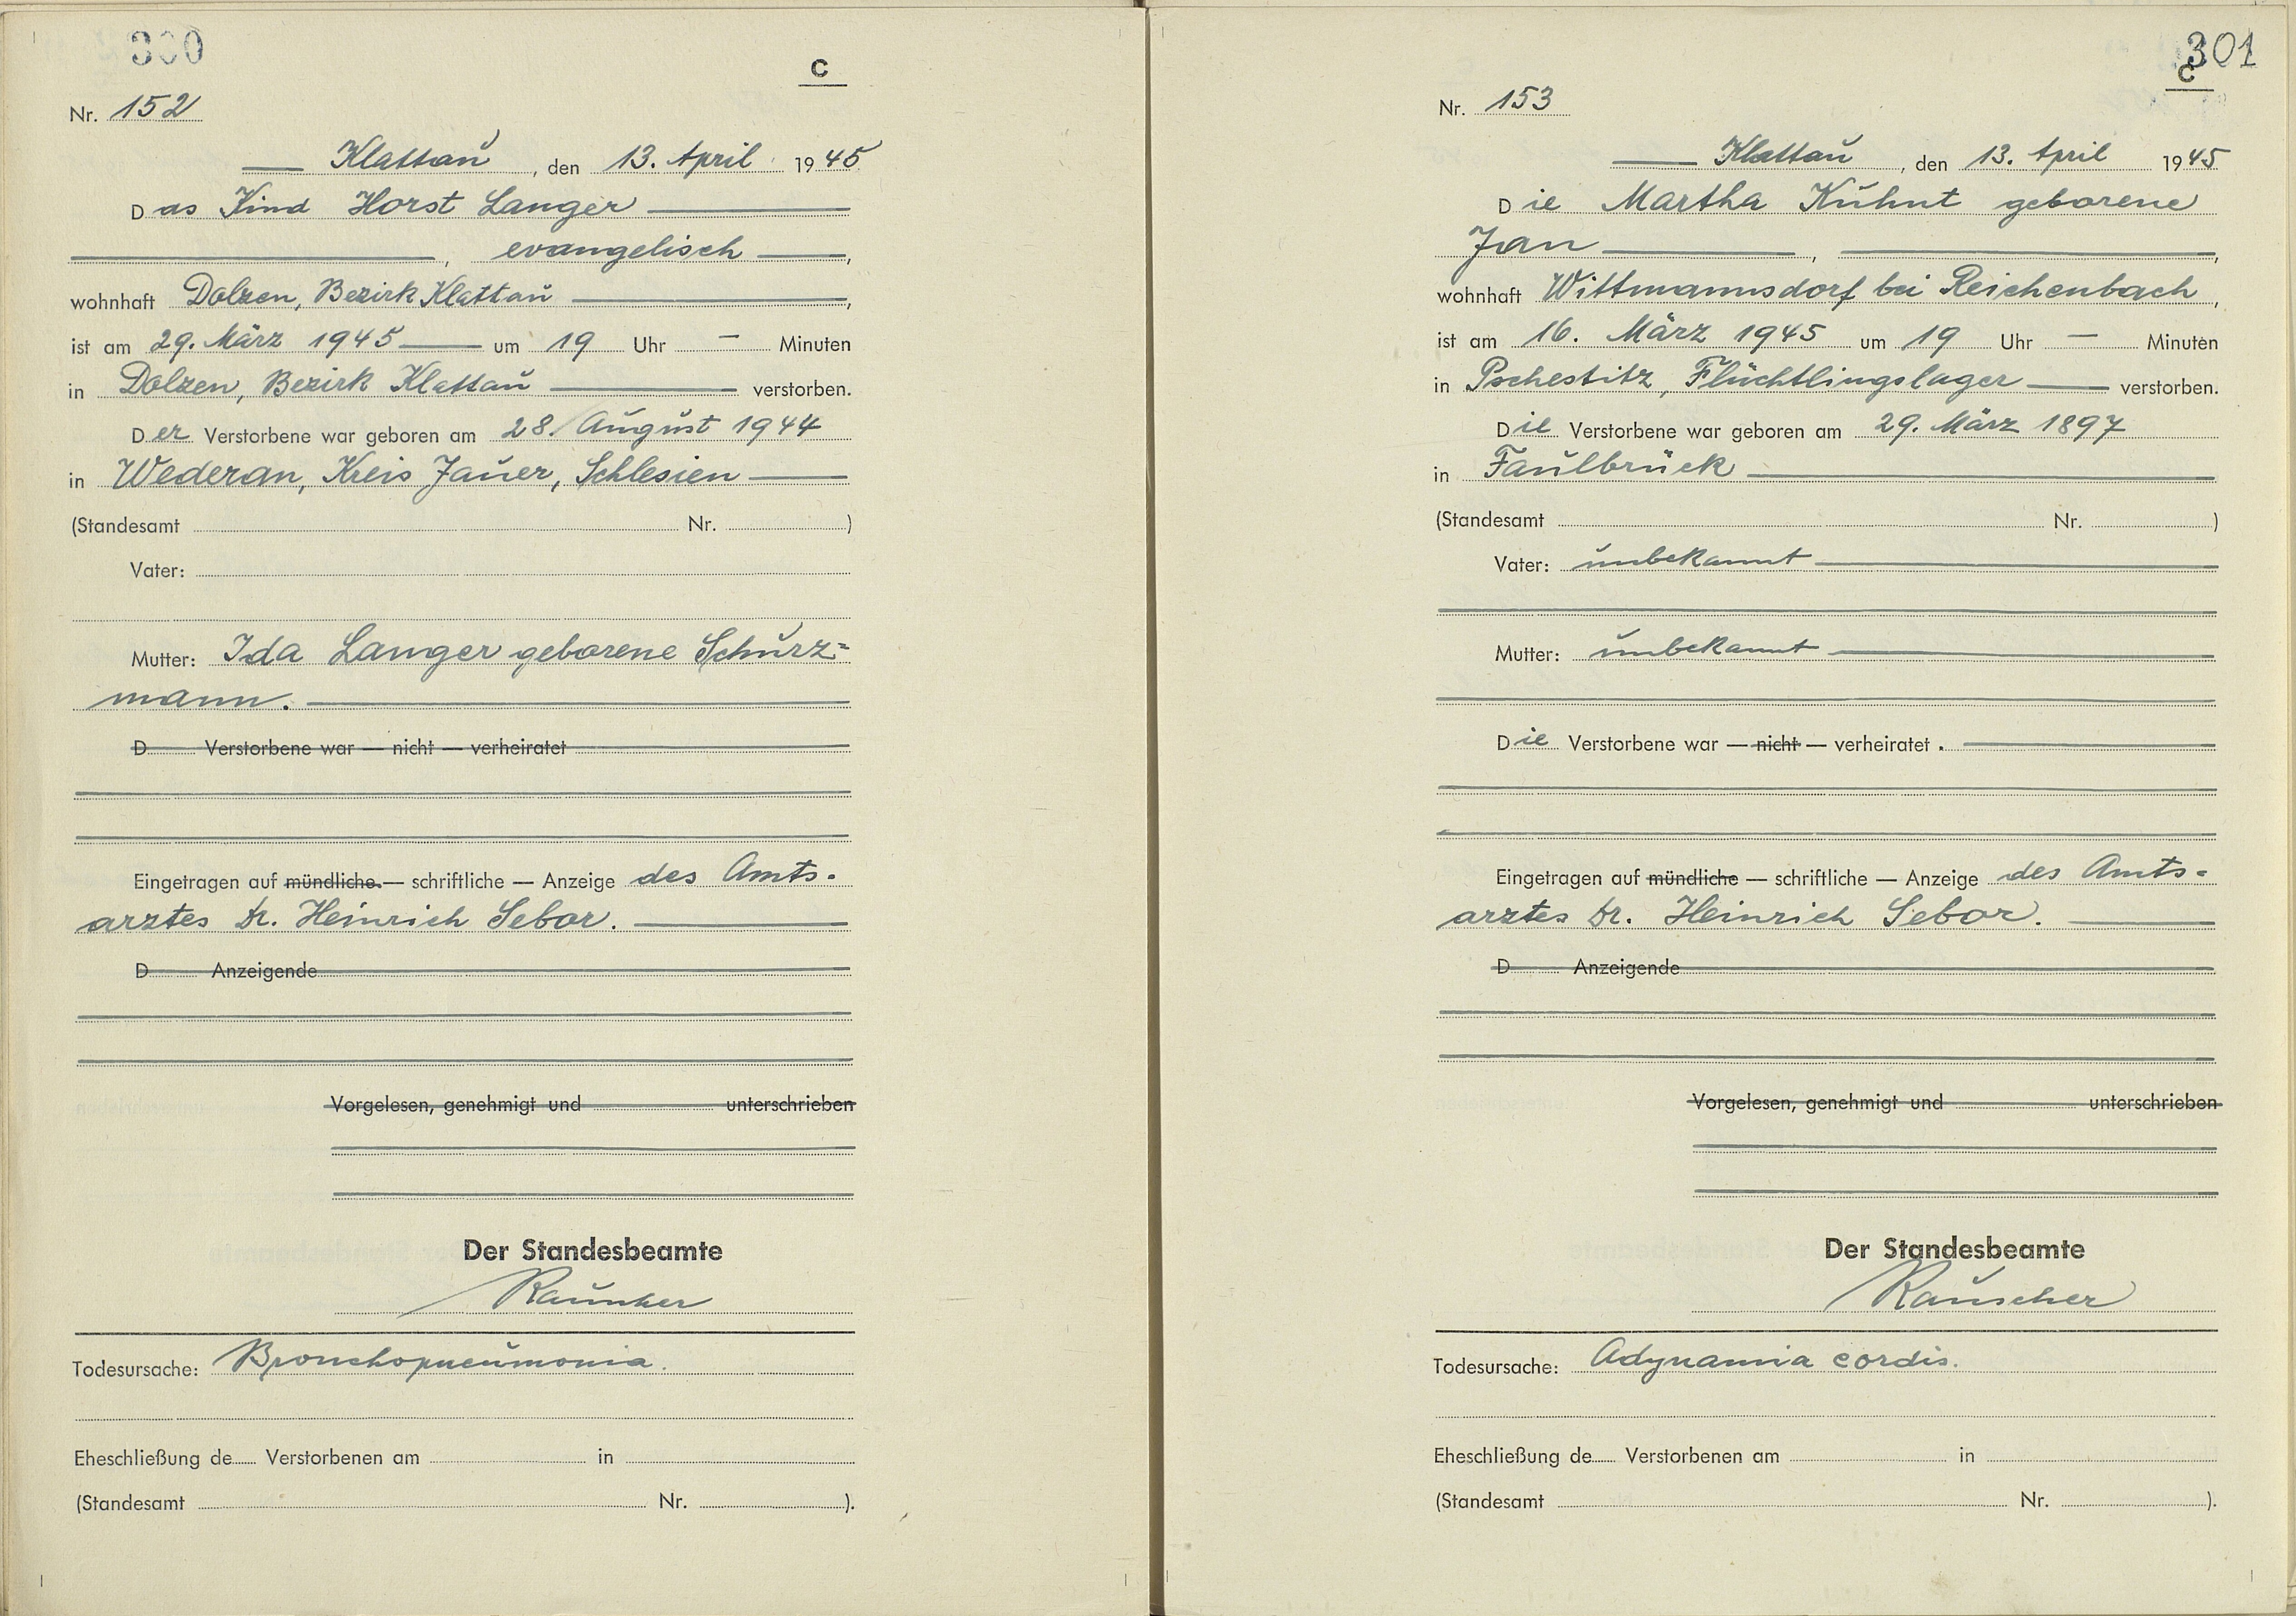 300
C
Nr. 152
Klattau, den 13. April 1945
Das Kind Horst Langer
, evangelisch ,
wohnhaft Dolzen, Bezirk Klattau ,
ist am 29. März 1945 um 19 Uhr — Minuten
in Dolzen, Bezirk Klattau verstorben.
Der Verstorbene war geboren am 28. August 1944
in Wederan, Kreis Jauer, Schlesien
(Standesamt Nr. )
Vater:
Mutter: Ida Langer geborene Schurz=
mann.
D Verstorbene war — nicht — verheiratet
Eingetragen auf mündliche — schriftliche — Anzeige des Amts-
arztes Dr. Heinrich Sebor.
D Anzeigende
Vorgelesen, genehmigt und unterschrieben
Der Standesbeamte
Rauscher
Todesursache: Bronchopneumonia.
Eheschließung de Verstorbenen am in
(Standesamt Nr. ).
301
C
Nr. 153
Klattau, den 13. April 1945
Die Martha Kuhnt geborene
Jan , ,
wohnhaft Wittmannsdorf bei Reichenbach,
ist am 16. März 1945 um 19 Uhr — Minuten
in Pschestitz, Flüchtlingslager verstorben.
Die Verstorbene war geboren am 29. März 1897
in Faulbrück
(Standesamt Nr. )
Vater: unbekannt
Mutter: unbekannt
Die Verstorbene war — nicht — verheiratet.
Eingetragen auf mündliche — schriftliche — Anzeige des Amts=
arztes Dr. Heinrich Sebor.
D Anzeigende
Vorgelesen, genehmigt und unterschrieben
Der Standesbeamte
Rauscher
Todesursache: Adynamia cordis.
Eheschließung de Verstorbenen am in
(Standesamt Nr. ).